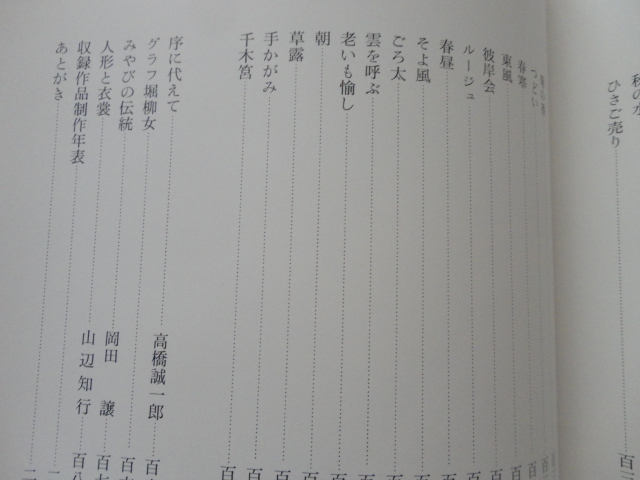 秋の水
ひさご売り……百
つどい……百
春寒……百
東風……百
彼岸会……百
ルージュ……百
春昼……百
そよ風……百
ごろ太……百
雲を呼ぶ……百
老いも愉し……百
朝……百
草露……百
手かがみ……百
千木筥……百
序に代えて……高橋誠一郎 百
グラフ堀柳女……百
みやびの伝統……岡田 譲 百七
人形と衣裳……山辺知行 百八
収録作品制作年表……
あとがき……二